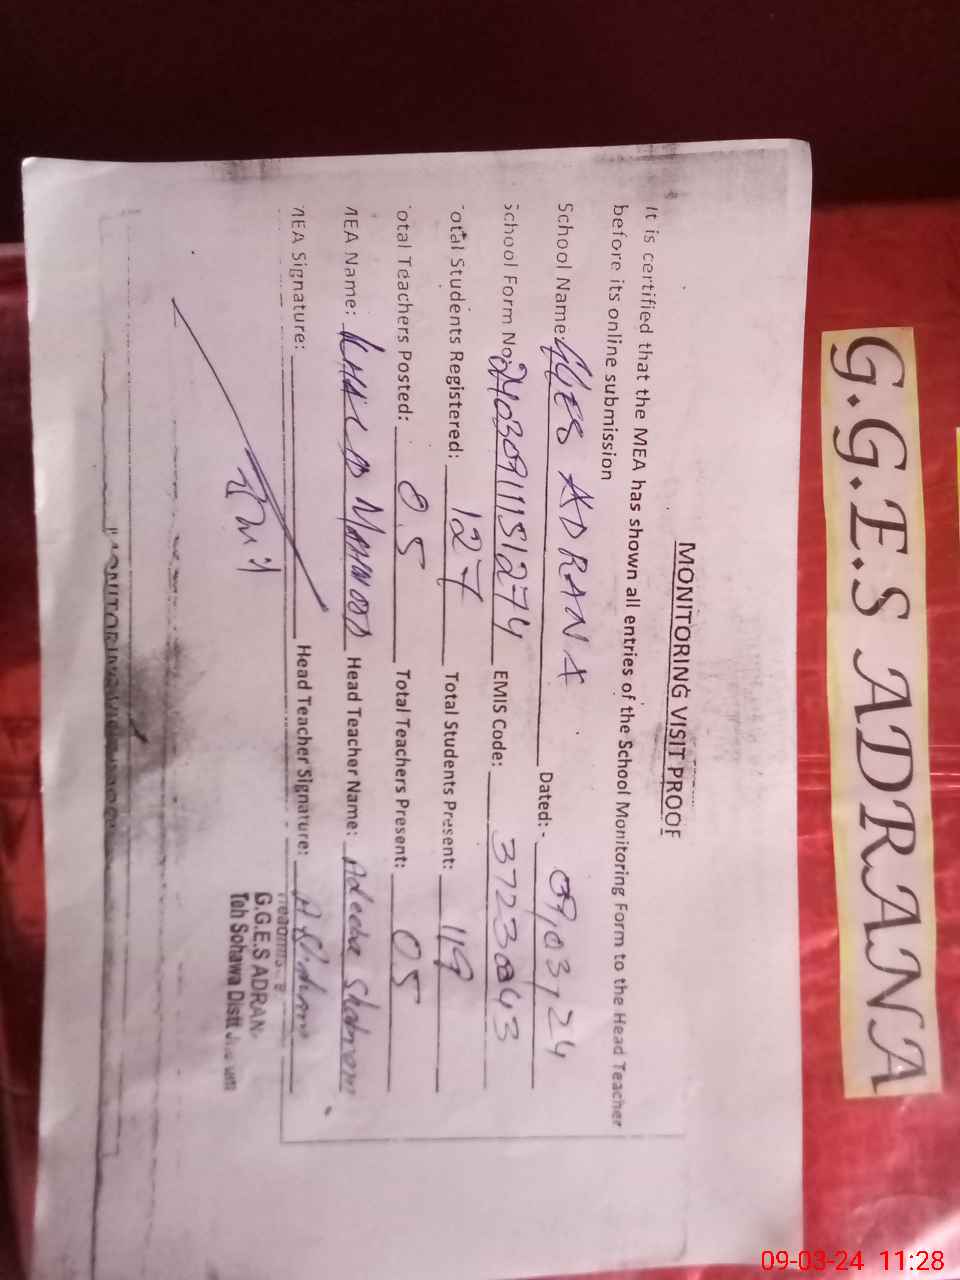 G.G.E.S ADRANA
MONITORING VISIT PROOF
It is certified that the MEA has shown all entries of the School Monitoring Form to the Head Teacher
before its online submission
School Name: GGES ADRANA Dated:- 09/03/24
School Form No: 24030911151274 EMIS Code: 37230043
Total Students Registered: 127 Total Students Present: 119
Total Teachers Posted: 05 Total Teachers Present: 05
MEA Name: KHALID MEHMOOD Head Teacher Name: Adeeba Shabnam
MEA Signature: Head Teacher Signature:
G.G.E.S ADRAN
Teh Sohawa Distt
09-03-24 11:28